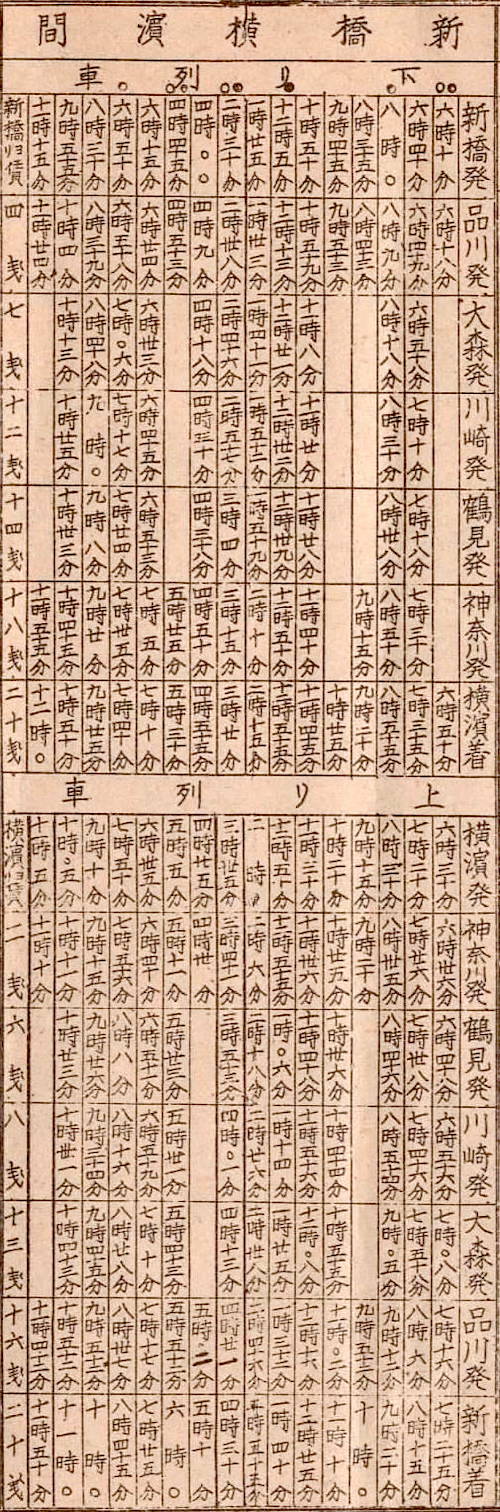 新橋横濱間
下り列車
新橋発 六時十分 六時四十分 八時○ 八時三十五分 九時四十五分 十時五十分 十二時五分 一時廿五分 二時三十分 四時○○ 四時四十五分 六時十五分 六時五十分 八時三十分 九時五十五分 十一時十五分 新橋归賃
品川発 六時十八分 六時四十九分 八時九分 八時四十三分 九時五十三分 十時五十九分 十二時十三分 一時卅三分 二時卅八分 四時九分 四時五十三分 六時廿四分 六時五十八分 八時三十九分 十時四分 十一時廿四分 四戋
大森発 六時五十八分 八時十八分 十一時八分 十二時廿一分 一時四十一分 二時四十六分 四時十八分 六時卅三分 七時○六分 八時四十八分 十時十三分 七戋
川崎発 七時十分 八時三十分 十一時廿分 十二時卅二分 一時五十二分 二時五十七分 四時三十分 六時四十五分 七時十七分 九時○ 十時廿五分 十二戋
鶴見発 七時十八分 八時卅八分 十一時廿八分 十二時卅九分 一時五十九分 三時四分 四時三十八分 六時五十三分 七時廿四分 九時八分 十時卅三分 十四戋
神奈川発 七時三十分 八時五十分 九時十五分 十一時四十分 十二時五十分 二時十分 三時十五分 四時五十分 五時廿五分 七時五分 七時卅五分 九時廿分 十時四十五分 十一時五十五分 十八戋
横濱着 六時五十分 七時三十五分 八時五十五分 九時二十分 十時廿五分 十一時四十五分 十二時五十五分 二時十五分 三時廿分 四時五十五分 五時三十分 七時十分 七時四十分 九時廿五分 十時五十分 十二時○ 二十戋
上り列車
横濱発 六時三十分 七時二十分 八時三十分 九時十五分 十時二十分 十一時三十分 十二時五十分 二時 三時卅五分 四時廿五分 五時五分 六時卅五分 七時五十分 九時十分 十時○五分 十一時五分 横濱归賃
神奈川発 六時卅六分 七時廿六分 八時卅五分 九時二十分 十時廿五分 十一時卅六分 十二時五十五分 二時六分 三時四十一分 四時卅分 五時十一分 六時四十分 七時五十六分 九時十五分 十時十一分 十一時十分 二戋
鶴見発 六時四十八分 七時卅八分 八時四十六分 十時卅六分 十一時四十八分 一時○六分 二時十八分 三時五十三分 五時廿三分 六時五十一分 八時八分 九時廿六分 十時廿三分 六戋
川崎発 六時五十六分 七時四十六分 八時五十四分 十時四十四分 十一時五十六分 一時十四分 二時廿六分 四時○一分 五時卅一分 六時五十九分 八時十六分 九時三十四分 十時卅一分 八戋
大森発 七時○八分 七時五十八分 九時○五分 十時五十五分 十二時○八分 一時廿五分 二時卅八分 四時十三分 五時四十三分 七時十分 八時廿八分 九時四十五分 十時四十三分 十三戋
品川発 七時十六分 八時六分 九時十二分 九時五十三分 十一時○二分 十二時十六分 一時三十二分 二時四十六分 四時廿一分 五時○二分 五時五十一分 七時十七分 八時卅七分 九時五十二分 十時五十二分 十一時四十二分 十六戋
新橋着 七時二十五分 八時十五分 九時二十分 十時○ 十一時十分 十二時廿五分 一時四十分 二時五十五分 四時三十分 五時十分 六時○ 七時廿五分 八時四十五分 十時○ 十一時○ 十一時五十分 二十戋